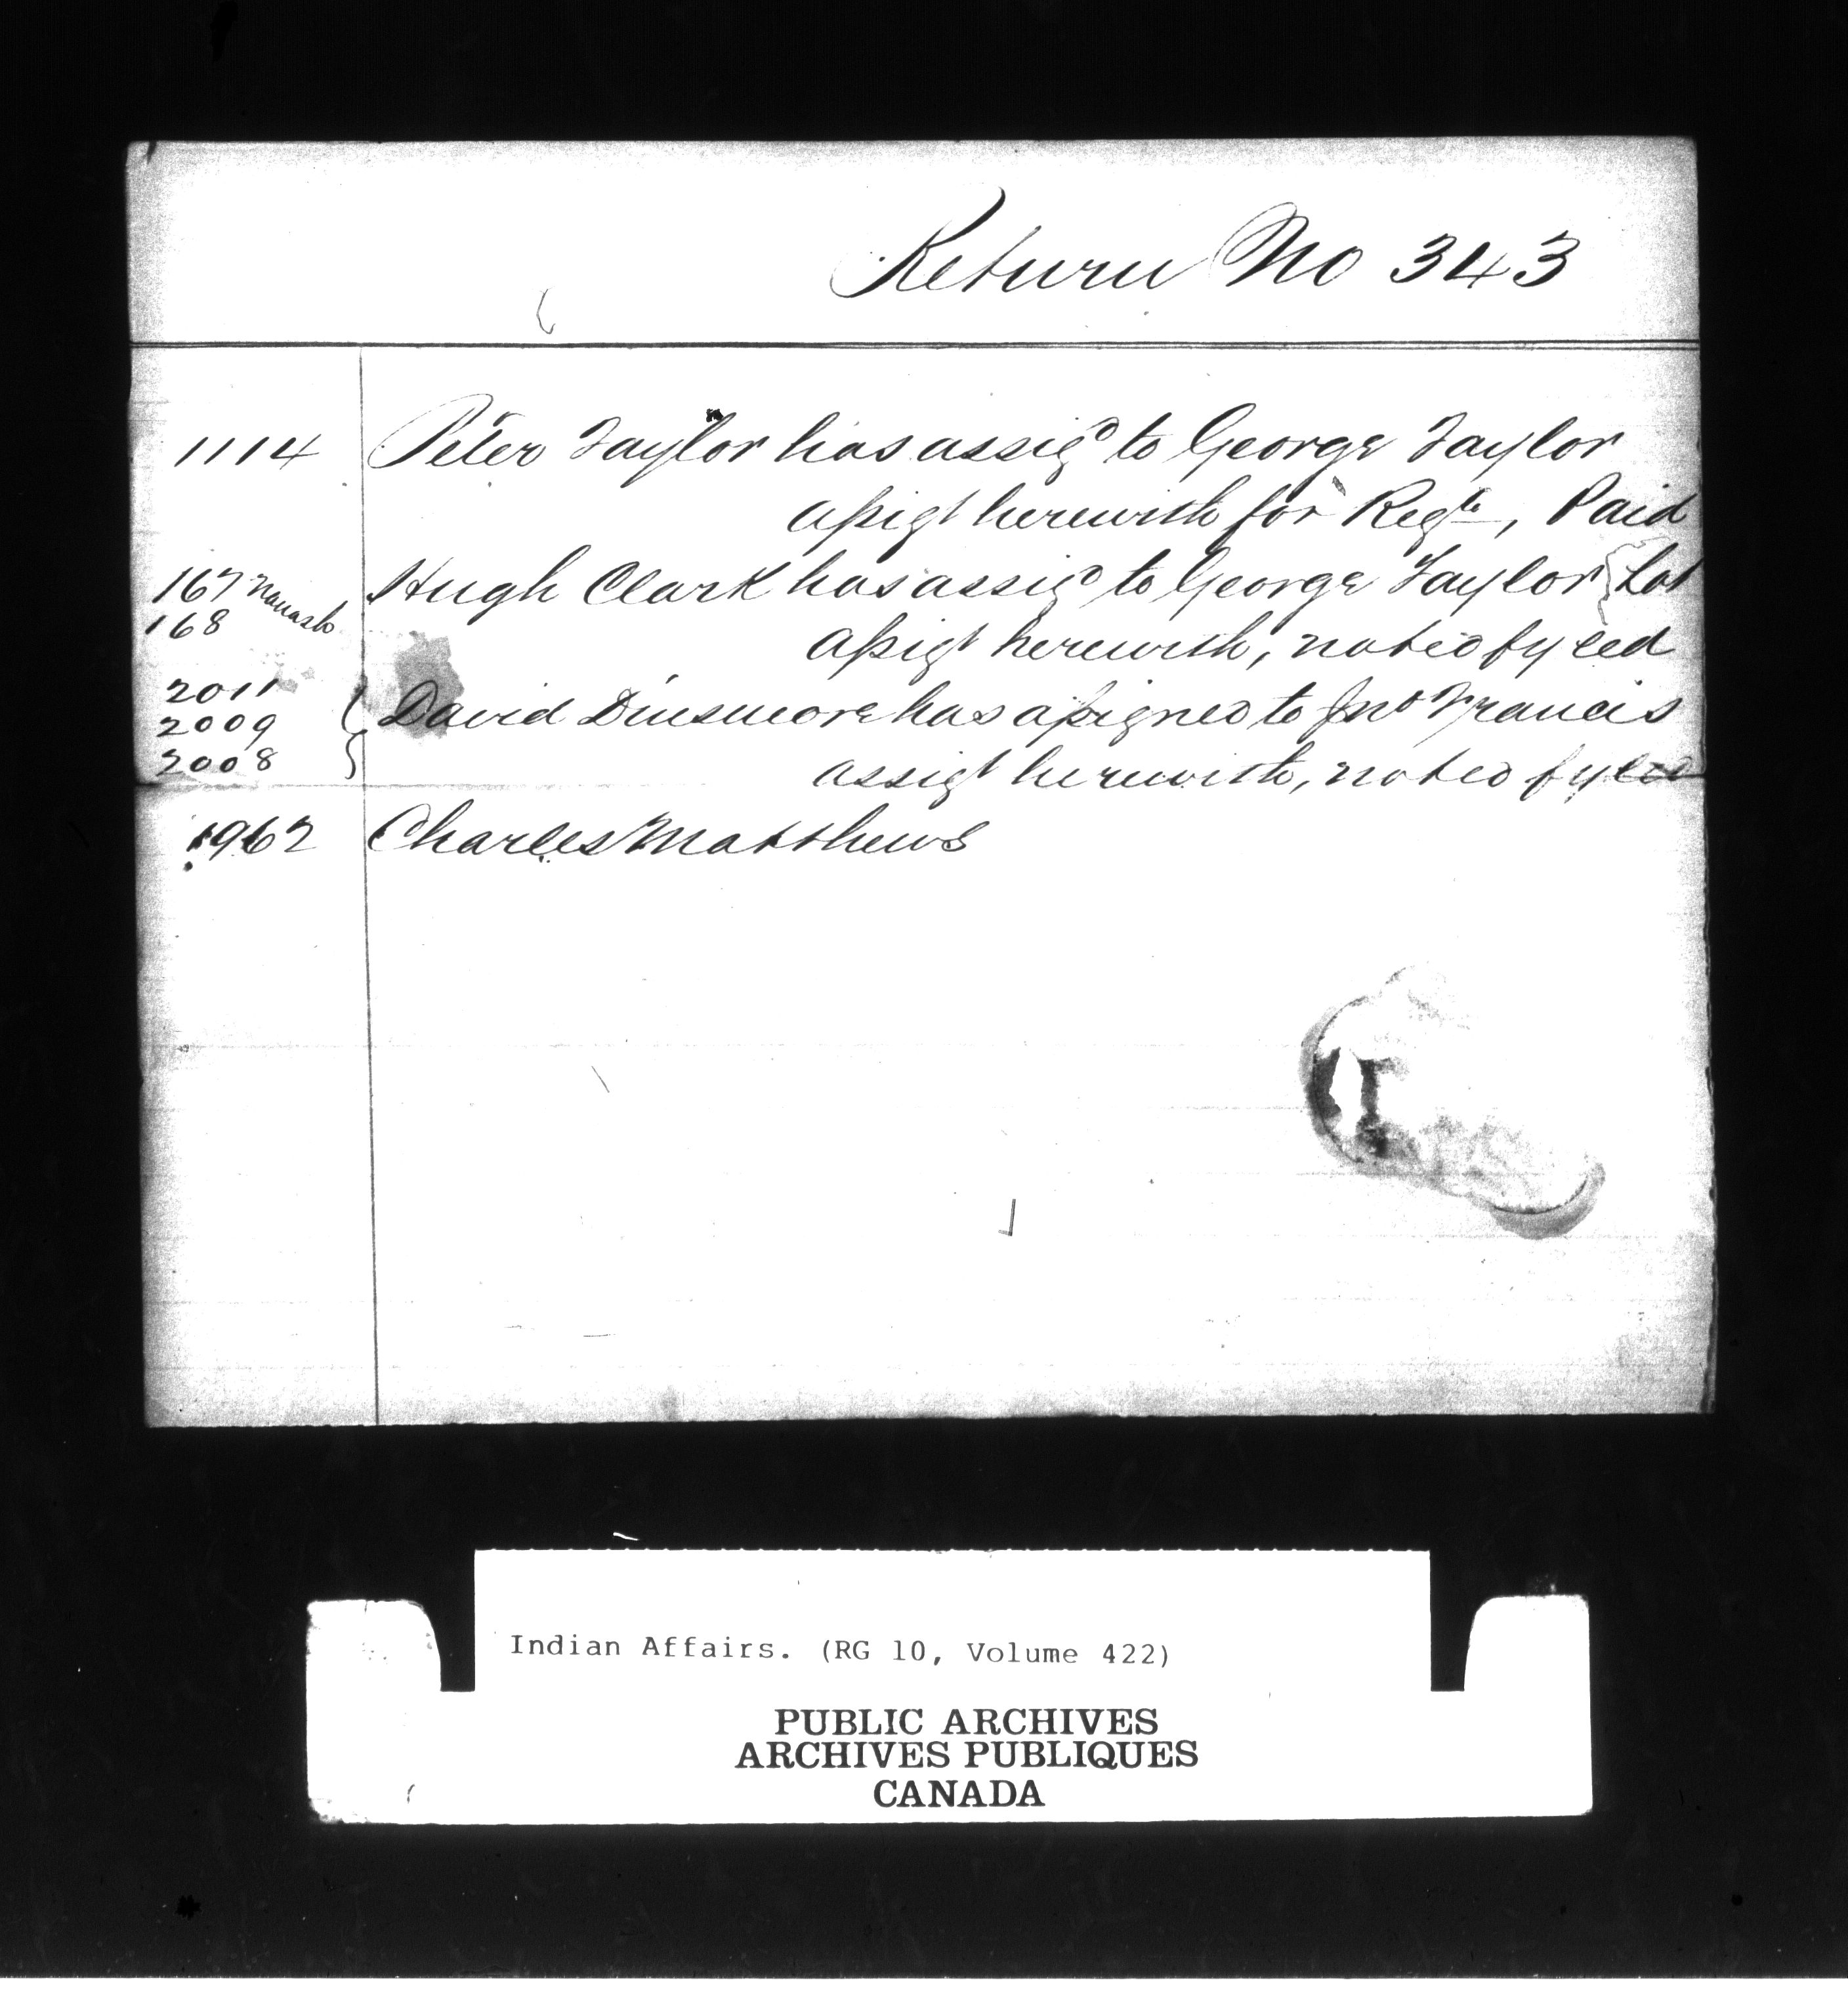 Return No 343
1114 Peter Taylor has assigd to George Taylor
assigt herewith for Regte, Paid
167 Nawash Hugh Clark has assigd to George Taylor { Lot
168 assigt herewith, noted fyled
2011
2009 { David Dinsmore has assigned to Jno Francis
2008 assigt herewith, noted fyled
1962 Charles Matthews
Indian Affairs. (RG 10, Volume 422)
PUBLIC ARCHIVES
ARCHIVES PUBLIQUES
CANADA